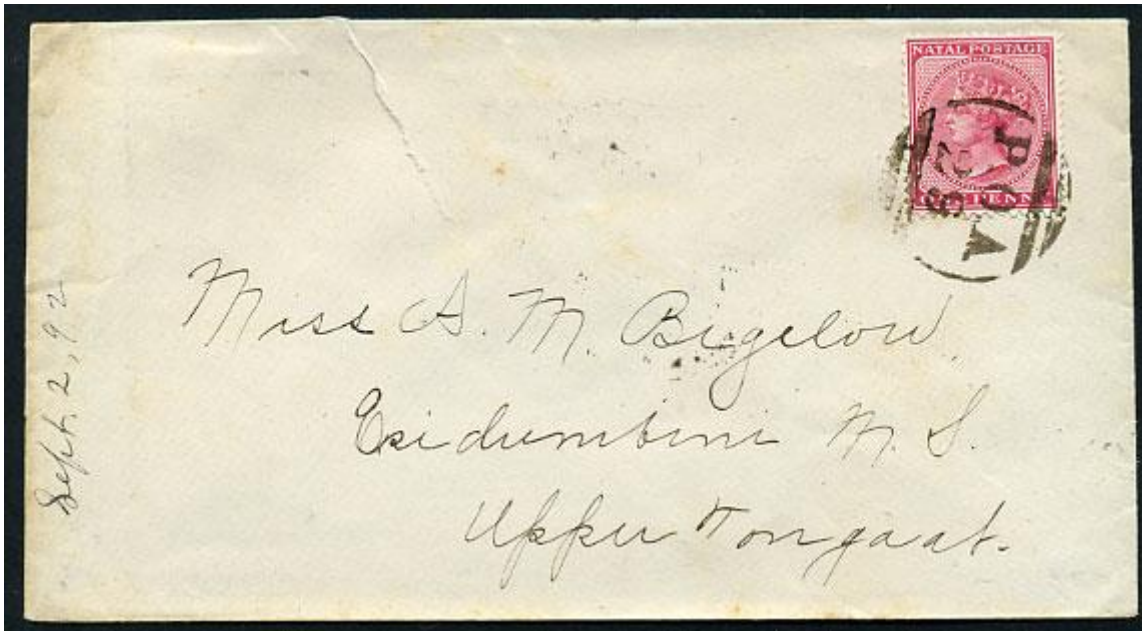 NATAL POSTAGE
ONE PENNY
P O A
28
Miss A. M. Bigelow
Esidumbini M. S.
Upper Tongaat.
Sept. 2, 92